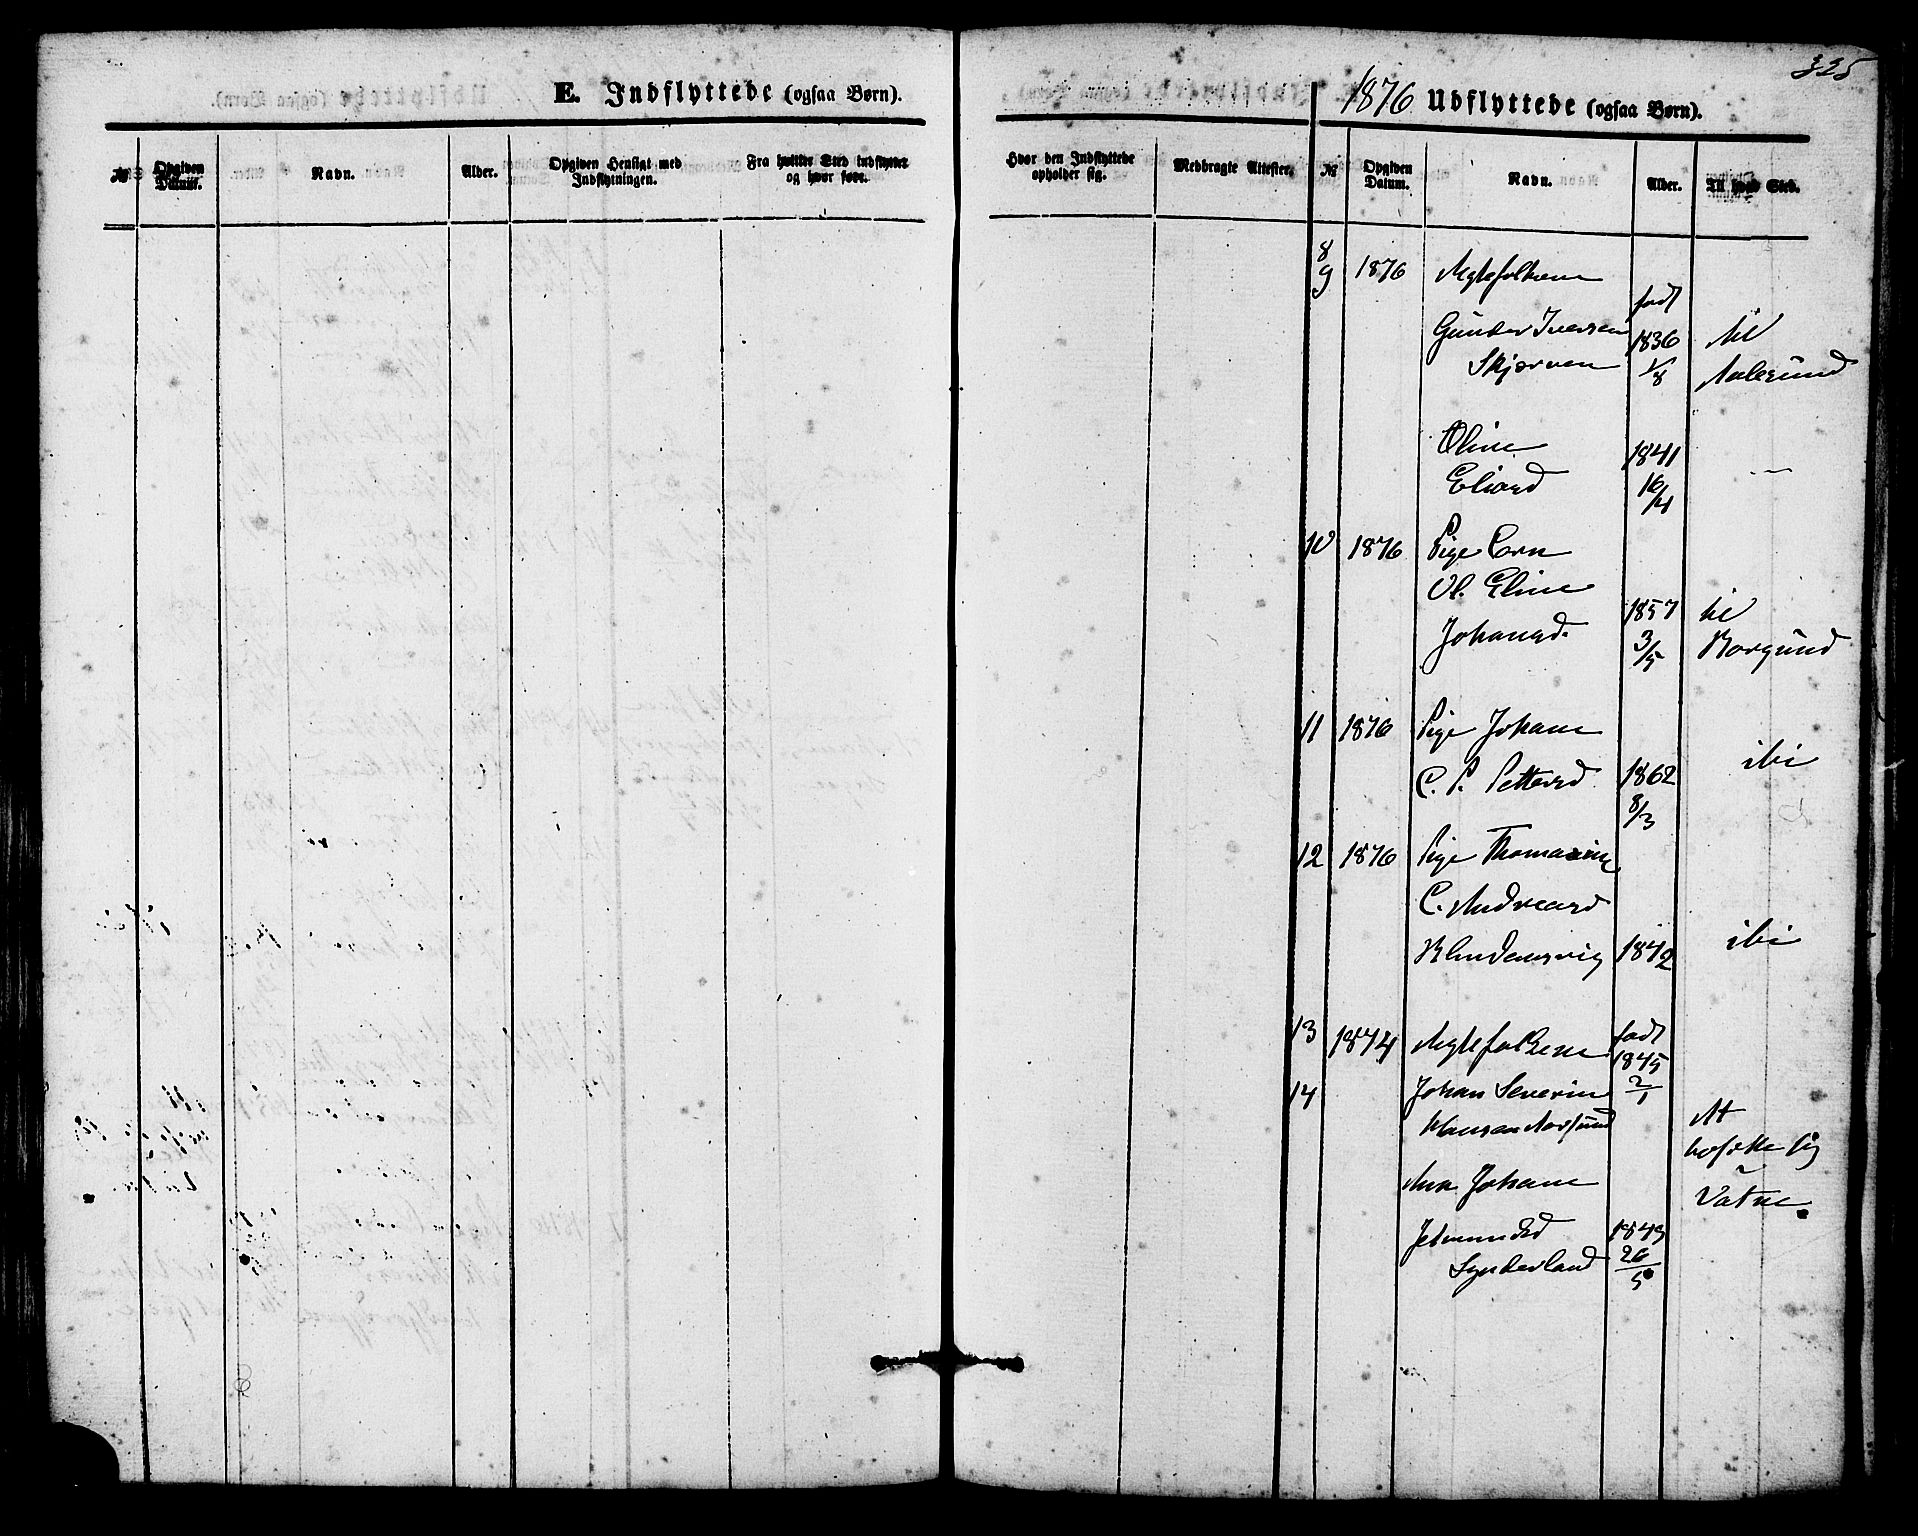 325
E. Indflyttede (ogsaa Børn).
1876 Udflyttede (ogsaa Børn).
№
Opgiven Datum.
Navn.
Alder.
Opgiven Hensigt med
Indflytningen.
Fra hvilket Sted indflyttet
og hvorføde.
Hvor den Indflyttede
opholder sig.
Medbragte Attester.
№
Opgiven
Datum.
Navn.
Alder.
Til hvad Sted.
8
9 1876 Ægtefolkene
født
Gunder Iversen 1836 til
Skjorven 1/8 Aalesund
Oline 1841 —
Eliasd 16/4
10 1876 Pige Corn
Ol. Eline
Johansd. 1857 til
3/5 Borgund
11 1876 Pige Johane
C. P. Pettersd 1862 ibi
8/3
12 1876 Pige Thomasine
C. Andreasd
Blindemsvig 1842 ibi
13 1874 Ægtefolkene født
1845
14 Johan Severin 2/1
Hansen Aarsund At
bosætte sig
Ana Johane Vatne
Jetmundsd 1849
Synderland 26/5